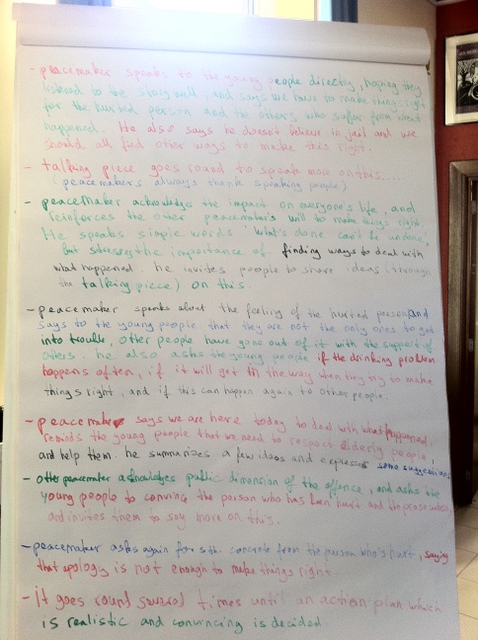 - peacemaker speaks to the young people directly, hoping they
listened to the story well, and says we have to make things right
for the hurted person and the others who suffer form what
happened. He also says he doesn't believe in jail and we
should all find other ways to make this right.
- talking piece goes round to speak more on this....
(peacemakers always thank speaking people)
- peacemaker acknowledge the impact on everyone's life, and
reinforces the other peacemaker's will to make things right.
He speaks simple words "what's done can't be undone,
but stresses the importance of finding ways to deal with
what happened. he invites people to share ideas (through
the talking piece) on this.
- peacemaker speaks about the feeling of the hurted person, and
says to the young people that they are not the only ones to get
into trouble, other people have gone out of it with the support of
others. he also asks the young people if the drinking problem
happens often, if it will get in the way when they try to make
things right, and if this can happen again to other people.
- peacemaker says we are here today to deal with what happened,
reminds the young people that we need to respect elderly people,
and help them. he summarizes a few ideas and expresses some suggestions
- other peacemaker acknowledges public dimension of the offence, and asks the
young people to convince the person who has been hurt and the prosecutor,
and invites them to say more on this.
- peacemaker asks again for sth. concrete from the person who's hurt, saying
that apology is not enough to make things right.
- it goes round several times until an action plan which
is realistic and convincing is decided